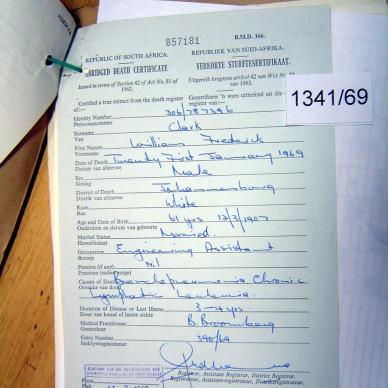 857181
B.M.D. 166.
REPUBLIC OF SOUTH AFRICA.
REPUBLIEK VAN SUID-AFRIKA.
ABRIDGED DEATH CERTIFICATE
VERKORTE STERFTESERTIFIKAAT.
Issued in terms of Section 42 of Act No. 81 of 1963.
Uitgereik kragtens artikel 42 van Wet No. 81 van 1963.
1341/69
Certified a true extract from the death register of:—
Gesertifiseer 'n ware uittreksel uit die register van:—
Identity Number
Persoonsnommer
306/787396
Surname
Van
Clark
First Names
Voorname
William Frederick
Date of Death
Datum van afsterwe
Twenty First January 1969
Sex
Geslag
Male
District of Death
Distrik van afsterwe
Johannesburg
Race
Ras
White
Age and Date of Birth
Ouderdom en datum van geboorte
61 yrs 12/3/1907
Marital Status
Huwelikstaat
Married
Occupation
Beroep
Engineering Assistant
Pension (if any)
Nil
Causes of Death
Oorsake van dood
Bronchopneumonia Chronic
Lymphatic Leukemia.
Duration of Disease or Last Illness
Duur van kwaal of laaste siekte
3-4 yrs
Medical Practitioner
Geneesheer
B. Broomberg
Entry Number
Inskrywingsnommer
390/69
Registrar, Assistant Registrar, District Registrar.
Registrateur, Assistent-registrateur, Distriksregistrateur.
Place
Plek